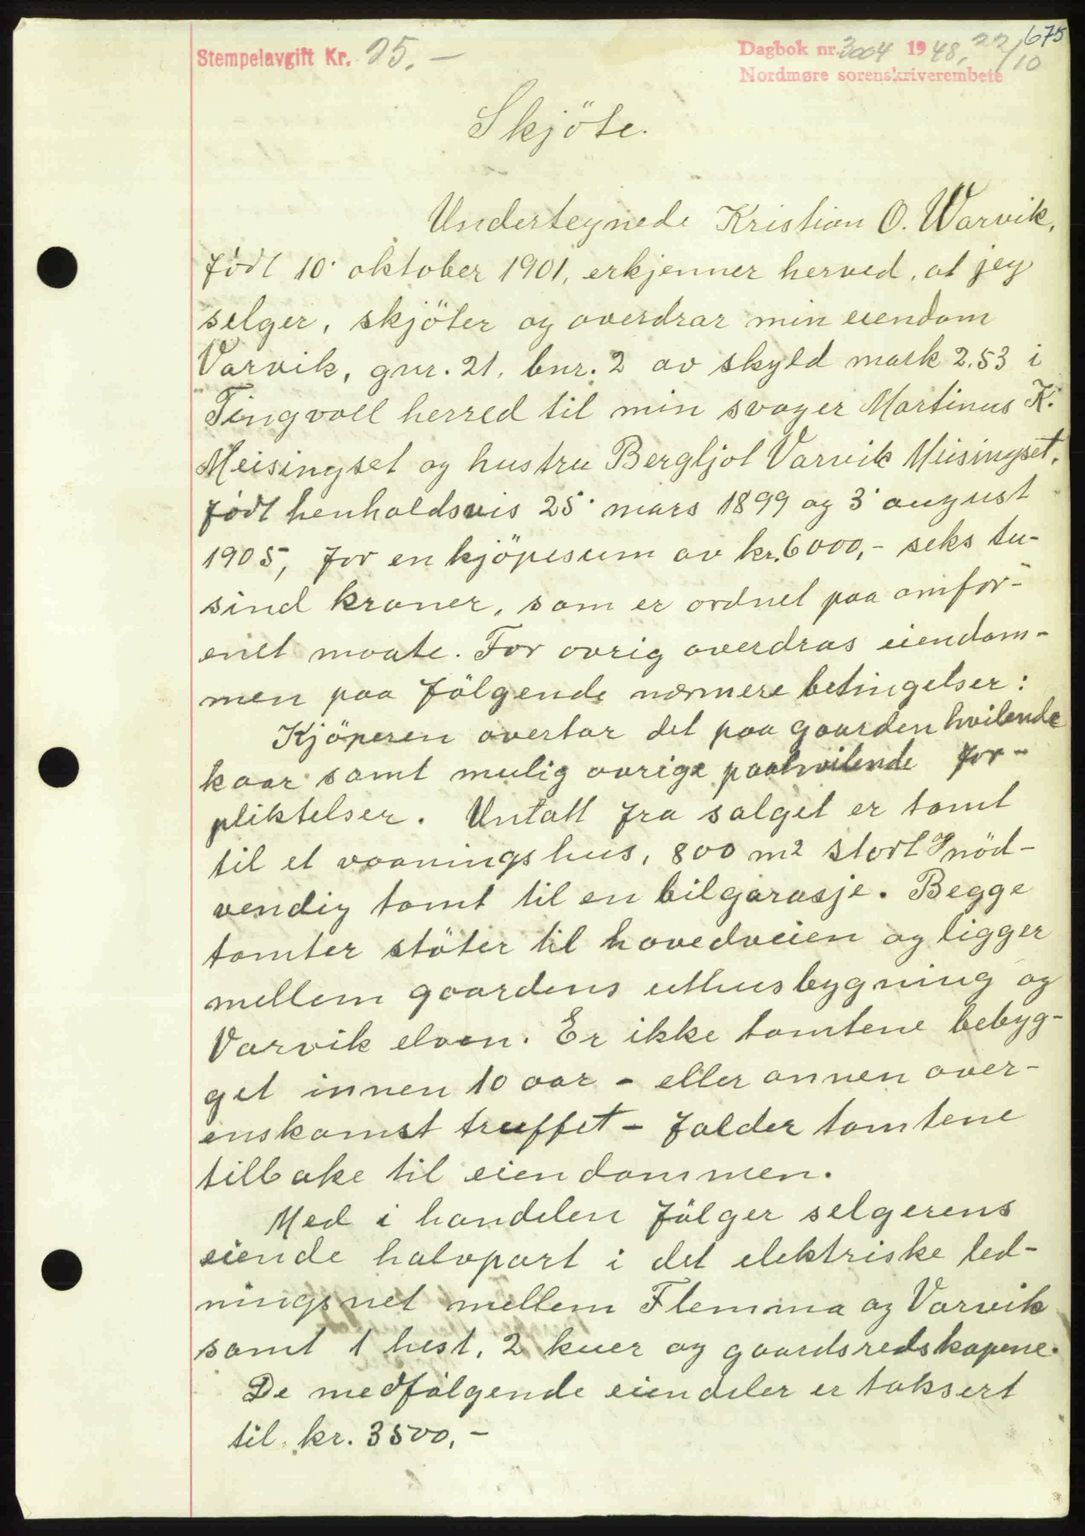 675
Stempelavgift Kr. 25.-
Dagbok nr. 3004 1948, 22/10
Nordmøre sorenskriverembete
Skjöte.
Undertegnede Kristian O. Warvik,
född 10. oktober 1901, erkjenner herved, at jeg
selger, skjöter og overdrar min eiendom
Varvik, gnr. 21. bnr. 2 av skyld mark 2.53 i
Tingvoll herred til min svoger Martinus K.
Meisingset og hustru Bergljot Varvik Meisingset,
född henholdsvis 25. mars 1899 og 3. august
1905, for en kjöpesum av kr. 6000,- seks tu-
sind kroner, som er ordnet paa omfor-
enet maate. For ovrig overdras eiendom-
men paa fölgende nærmere betingelser:
Kjöperen overtar det paa gaarden hvilende
kaar samt mulig ovrige paahvilende for-
pliktelser. Untatt fra salget er tomt
til et vaaningshus, 800 m2 stort & nöd-
vendig tomt til en bilgarasje. Begge
tomter stöter til hovedveien og ligger
mellem gaardens uthusbygning og
Varvik elven. Er ikke tomtene bebyg-
get innen 10 aar - eller annen over-
enskomst truffet - falder tomtene
tilbake til eiendommen.
Med i handelen fölger selgerens
eiende halvpart i det elektriske led-
ningsnet mellem Flemma og Varvik
samt 1 hest, 2 kuer og gaardsredskapene.
De medfölgende eiendeler er taksert
til kr. 3500,-